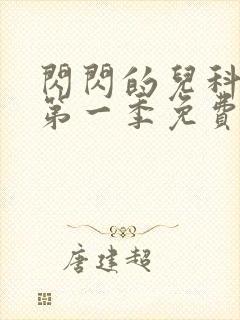 閃閃的兒科
第一季免費
唐建超